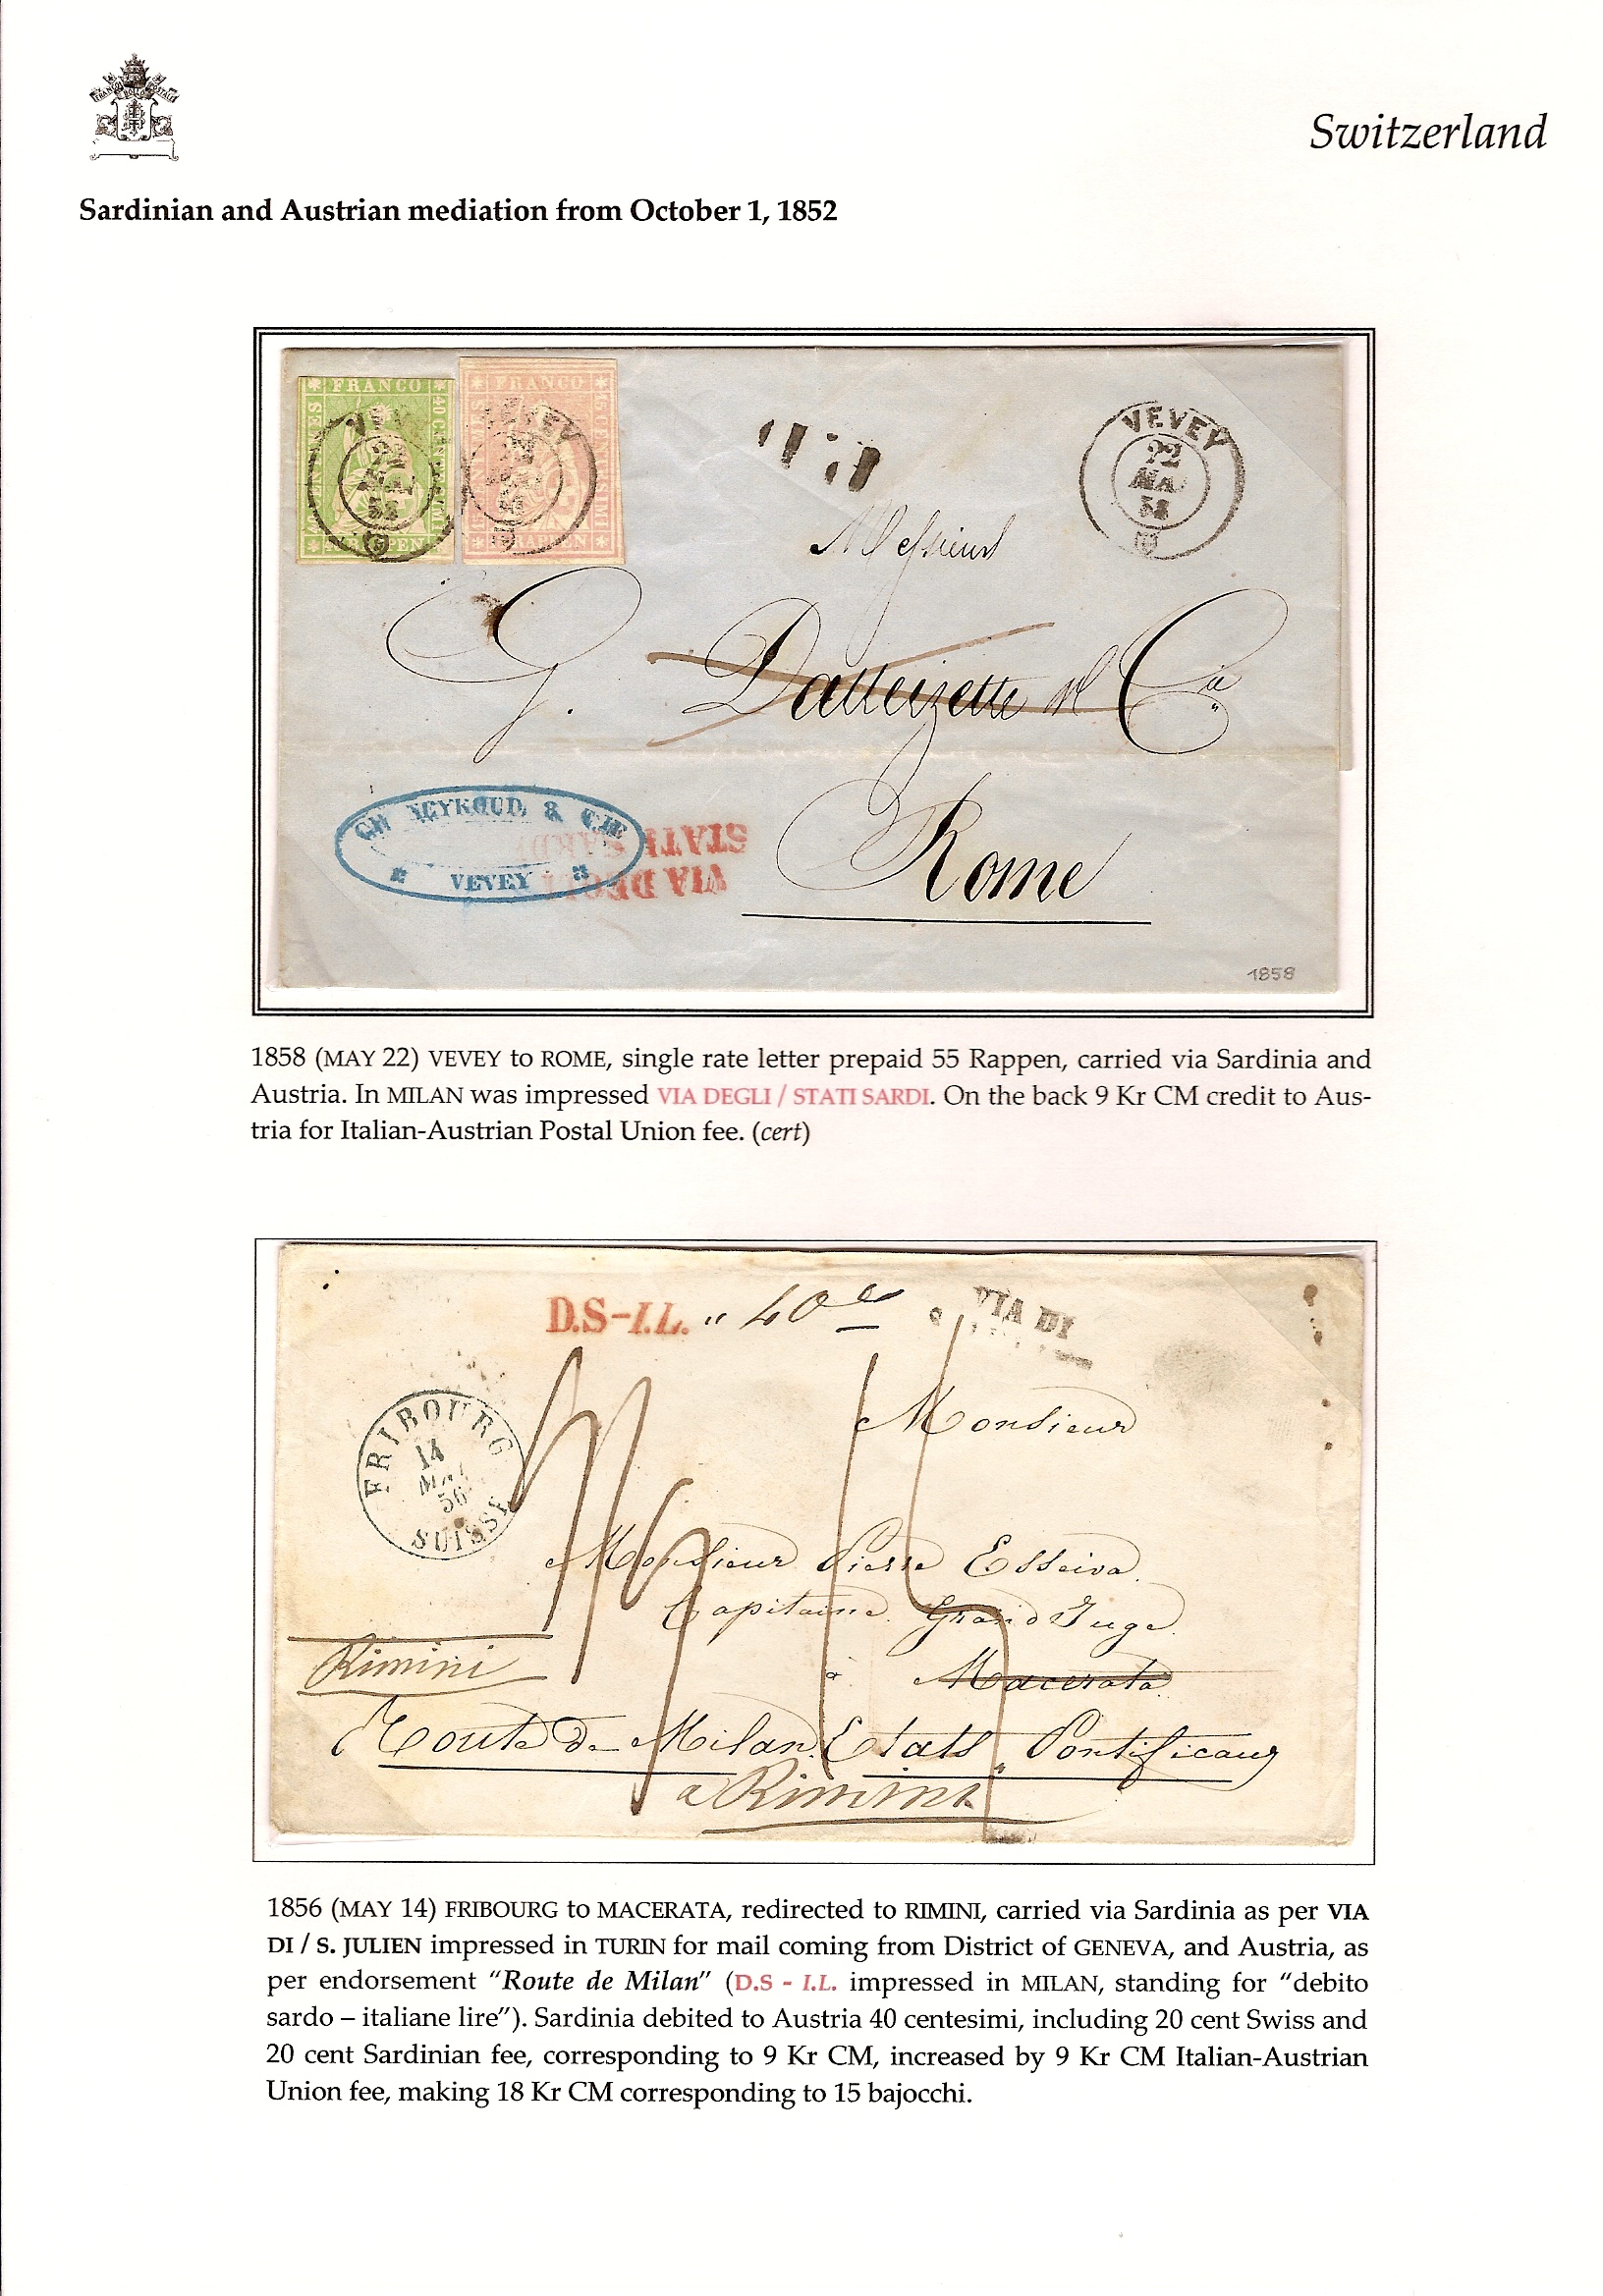 Switzerland
Sardinian and Austrian mediation from October 1, 1852
FRANCO
FRANCO
40
RAPPEN
RAPPEN
VEVEY
VEVEY
22
58
VEVEY
22
MA
58
Messieurs
G. & Cia
Rome
& CIE
VEVEY
VIA DEGLI
STATI SARDI
1858
1858 (MAY 22) VEVEY to ROME, single rate letter prepaid 55 Rappen, carried via Sardinia and
Austria. In MILAN was impressed VIA DEGLI / STATI SARDI. On the back 9 Kr CM credit to Aus-
tria for Italian-Austrian Postal Union fee. (cert)
D.S-I.L. " 40 VIA DI
FRIBOURG
14
MAI
56
SUISSE
Monsieur
Monsieur Pierre Esseiva
Capitaine Grand Juge
Rimini
à Macerata
Route de Milan. Etats Pontificaux
a Rimini
1856 (MAY 14) FRIBOURG to MACERATA, redirected to RIMINI, carried via Sardinia as per VIA
DI / S. JULIEN impressed in TURIN for mail coming from District of GENEVA, and Austria, as
per endorsement "Route de Milan" (D.S - I.L. impressed in MILAN, standing for "debito
sardo – italiane lire"). Sardinia debited to Austria 40 centesimi, including 20 cent Swiss and
20 cent Sardinian fee, corresponding to 9 Kr CM, increased by 9 Kr CM Italian-Austrian
Union fee, making 18 Kr CM corresponding to 15 bajocchi.